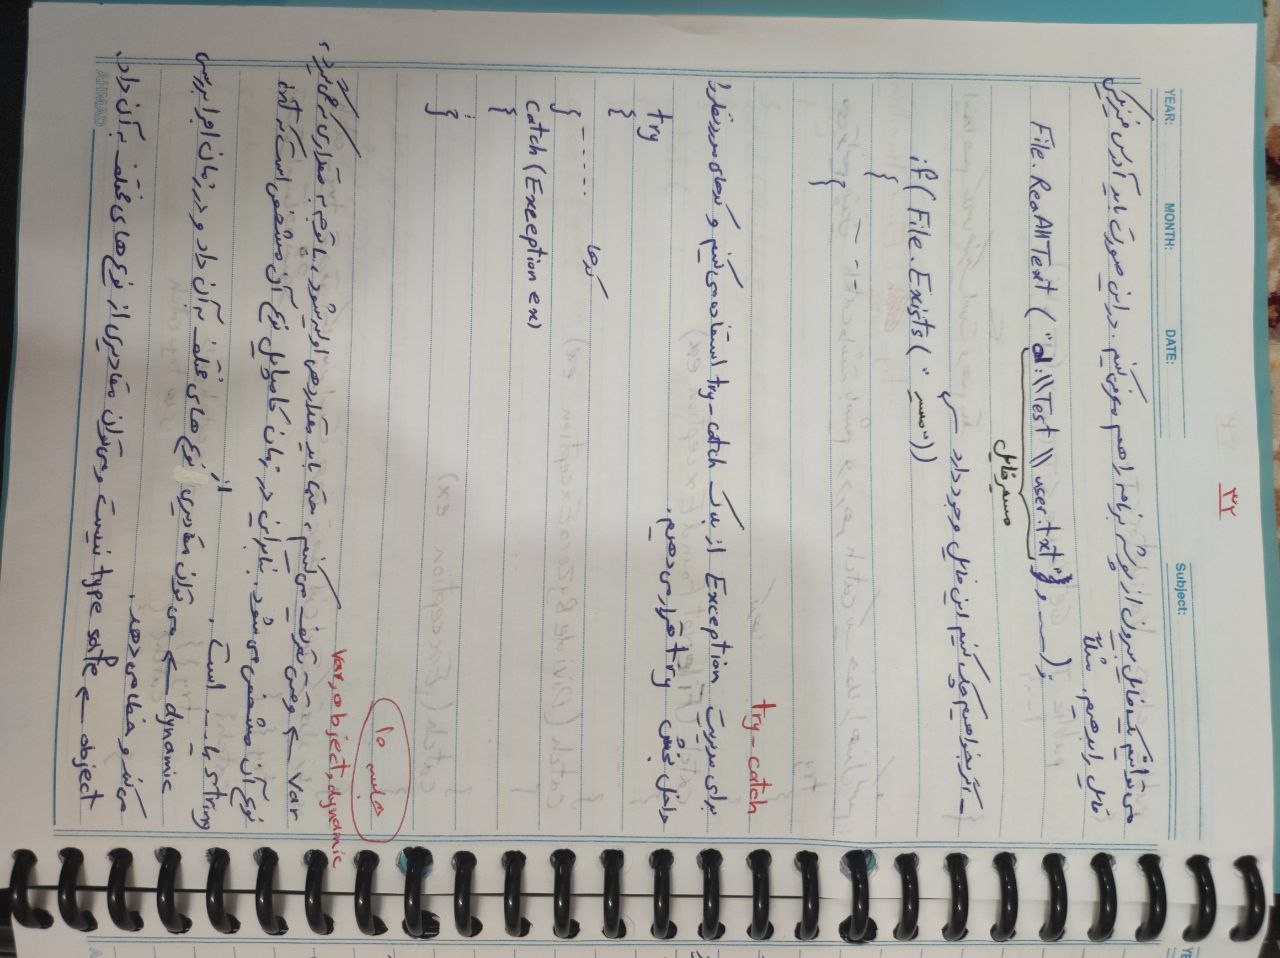 ۳۲
YEAR: MONTH: DATE: Subject:
می توانیم یک فایل بیرون از پوشه برنامه را هم معرفی کنیم. در این صورت باید آدرس فیزیکی
فایل را بدهیم. مثلاً
File.ReaAllText ("d:\\Test\\user.txt", ——);
مسیر فایل
- اگر بخواهیم چک کنیم این فایل وجود دارد
if( File.Exists("مسیر"))
{
- - - -
}
try-catch
برای مدیریت Exception از بلاک try-catch استفاده می کنیم و کدهای مورد نظر را
داخل بخش try قرار می دهیم.
try
{
کدها ------
}
catch (Exception ex)
{
⋮
}
جلسه ۱۰
var, object, dynamic
Var ← وقتی تعریف می کنیم، حتما باید مقداردهی اولیه شود، با توجه به مقداری که می گیرد،
نوع آن مشخص می شود. بنابراین در زمان کامپایل نوع آن مشخص است که int
یا string .... است.
dynamic ← می توان مقادیری از نوع های مختلف به آن داد و در زمان اجرا بررسی
می کند و خطا می دهد.
object ← type safe نیست و می توان مقادیری از نوع های مختلف به آن داد.
AHMAD